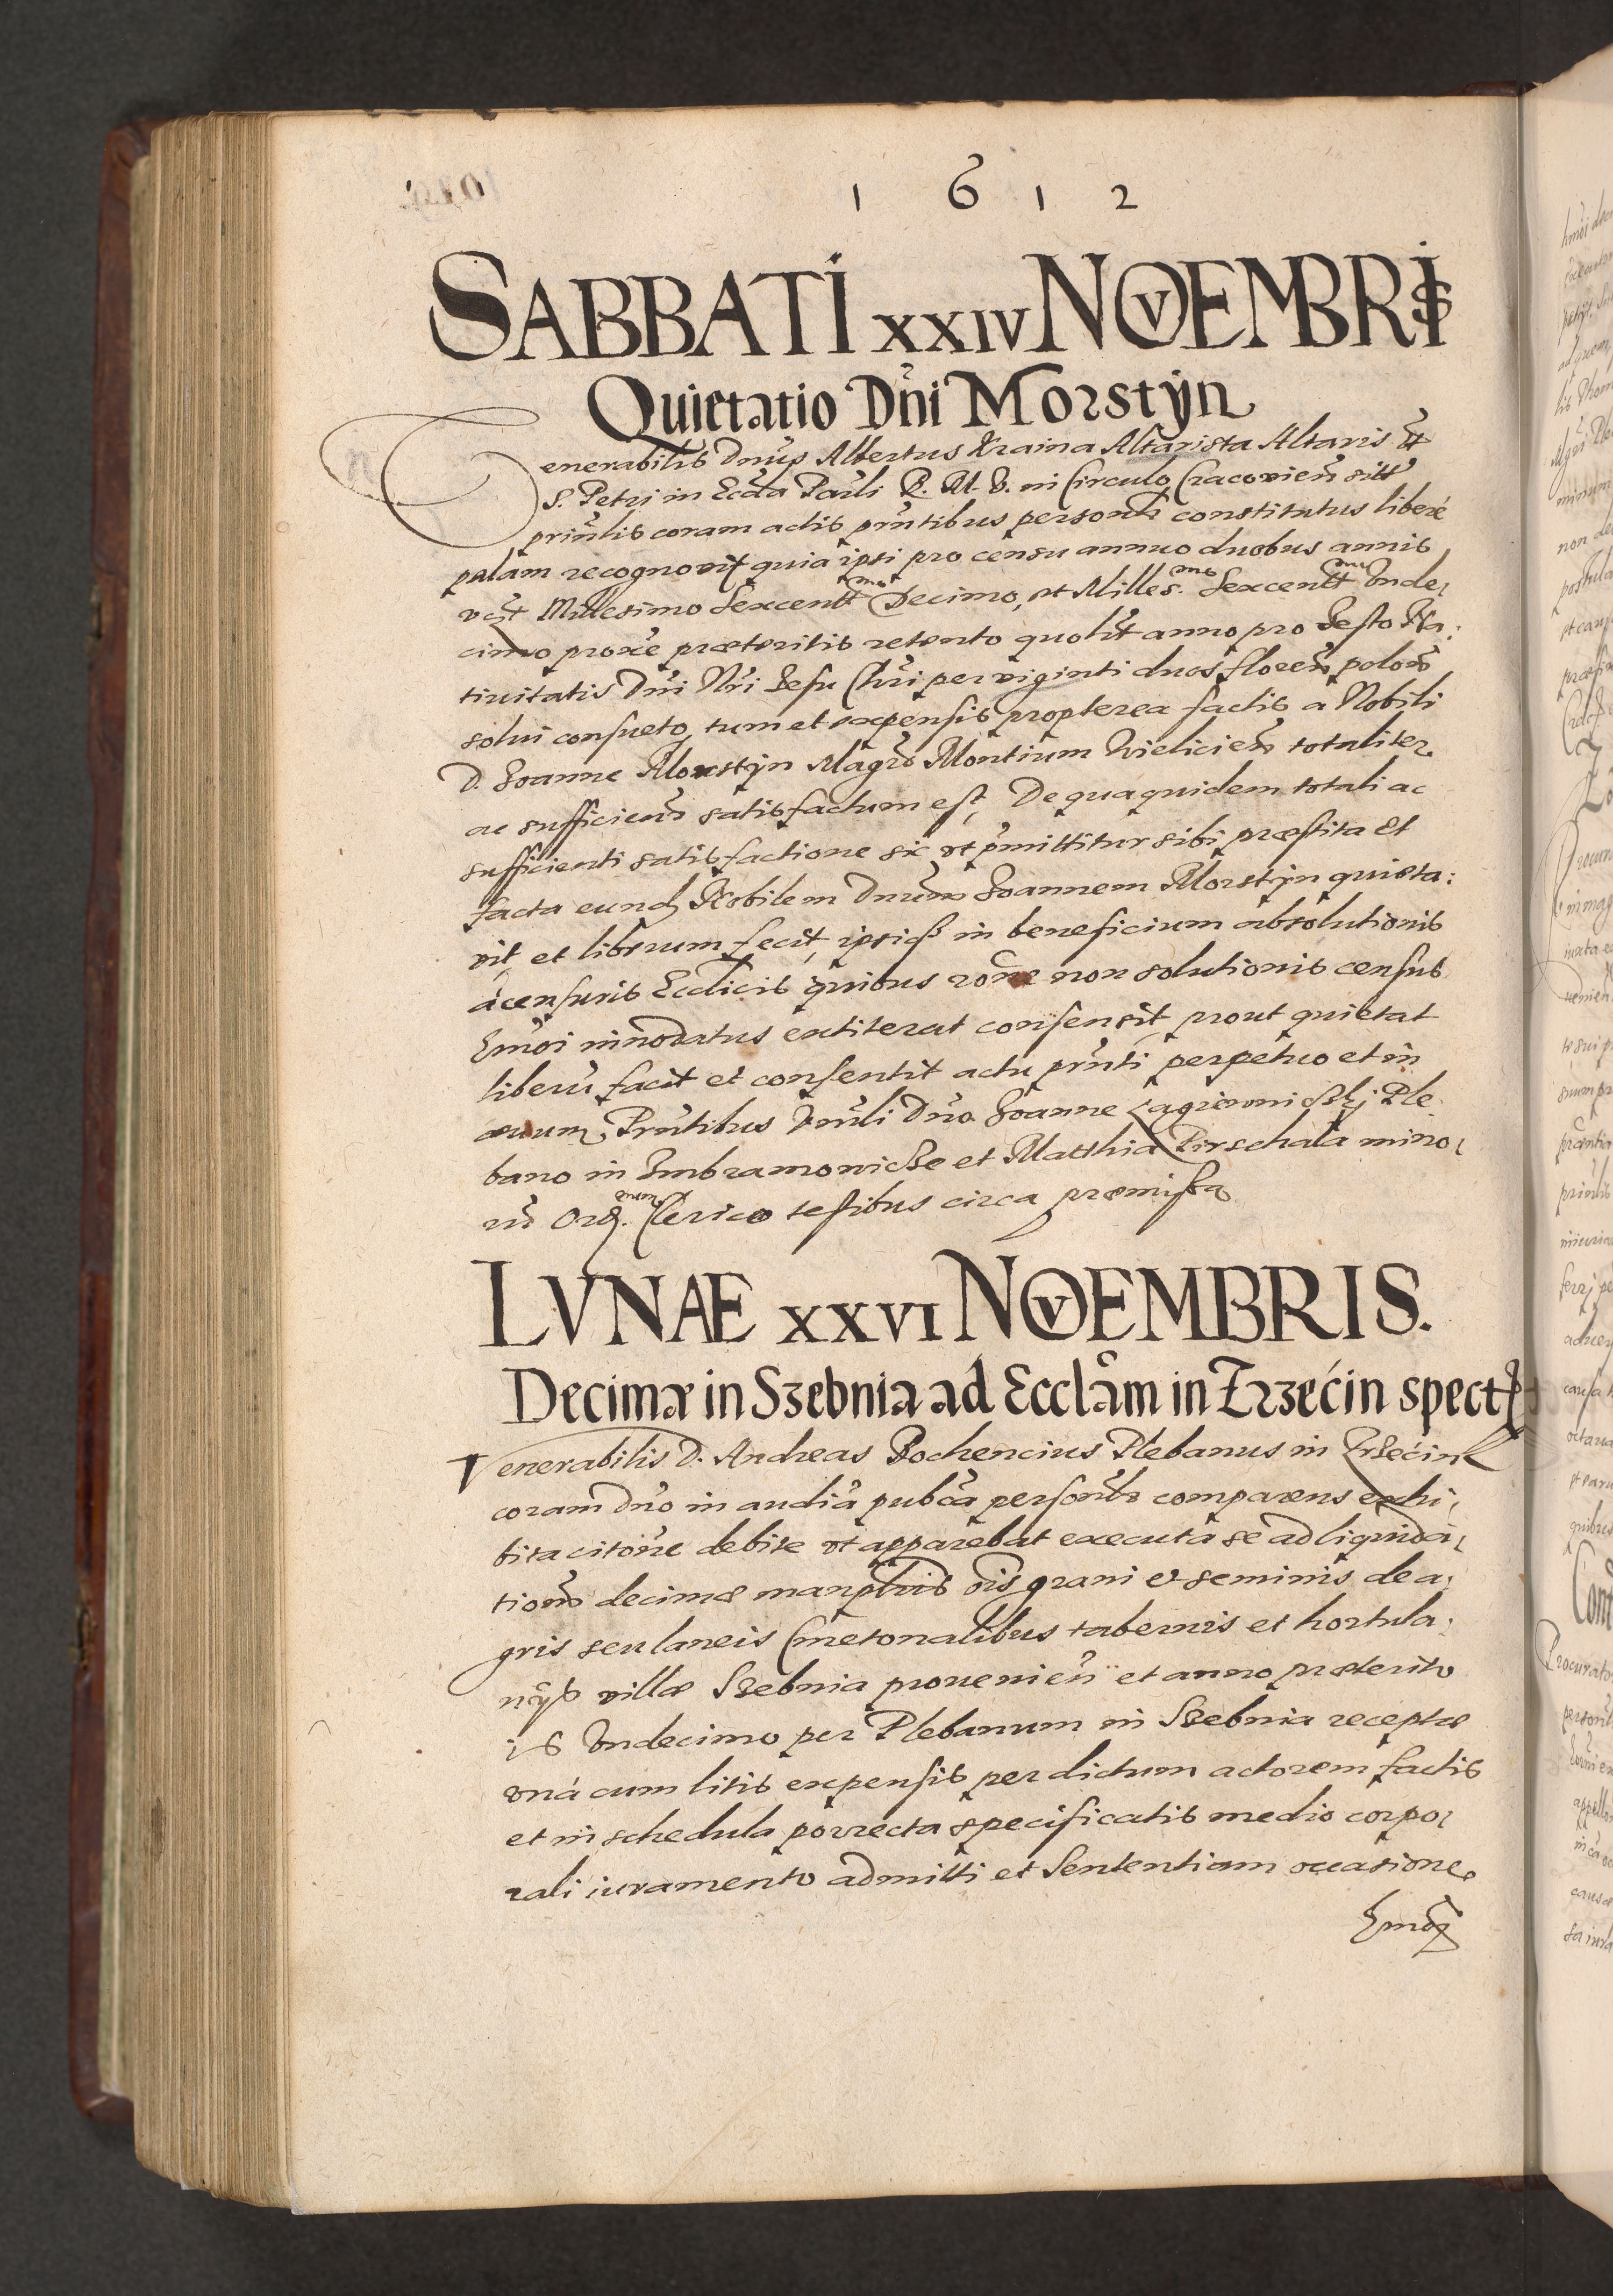 1 6 1 2
SABBATI XXIV NOVEMBRIS
Quietatio Dñi Morstÿn
Venerabilis Dnus Albertus Kraina Altarista Altaris
S. Petri in Eccla Parli B. M. V. in Circulo Cracovien̄ sitt
prin̄lis coram actis prn̄tibus personlr constitutus liberé
palam recognovit quia ipsi pro censu annuo duobus annis
vclt Millesimo Sexcentt mo Decimo, et Milles. mo Sexcentt mo Vnde,
cimo proxe præteritis retento quolt anno pro Festo Na:
tiuitatis Dni Nri Jesu Chri per viginti duos floren̄ polon̄
solui consueto, tum et expensis propterea factis a Nobili
D. Joanne Morstÿn Magro Montium Vielicien̄ totaliter
ac sufficien̄ satisfactum est, De qua quidem totali ac
sufficienti satisfactione sic vt pmittitur sibi præstita Et
facta eund Nobilem Dnum Joannem Morstÿn quieta:
vit et liberum fecit, ipsiq in beneficium absolutionis
á censuris Ecclicis quibus rone non solutionis census
hmōi innodatus extiterat consensit, prout quietat
liberū facit et consentit actu prn̄ti perpetuo et in
æuum, Prn̄tibus Dno Joanne Ple,
bano in Imbramowicze et Matthia Pirschala mino,
rū Ord. Clerico testibus circa præmissa
LVNÆ XXVI NOVEMBRIS.
Decimæ in Szebnia ad Ecclām in Trzećin spectt
Venerabilis D. Andreas Bochencius Plebanus in Trzećin
coram Dno in audia pubca personlr comparens exhi,
bita citone debite vt apparebat executa se ad liquida,
tionē decimæ manplis ois grani et seminis de a,
gris seu laneis Cmetonalibus tabernis et hortula,
villæ Szebnia prouenien̄ et anno præterito
Vndecimo per Plebanum in Szebnia receptæ
vná cum litis expensis per dictum actorem factis
et in schedula porrecta specificatis medio corpo,
rali iuramento admitti et Sententiam occasione
hmōi